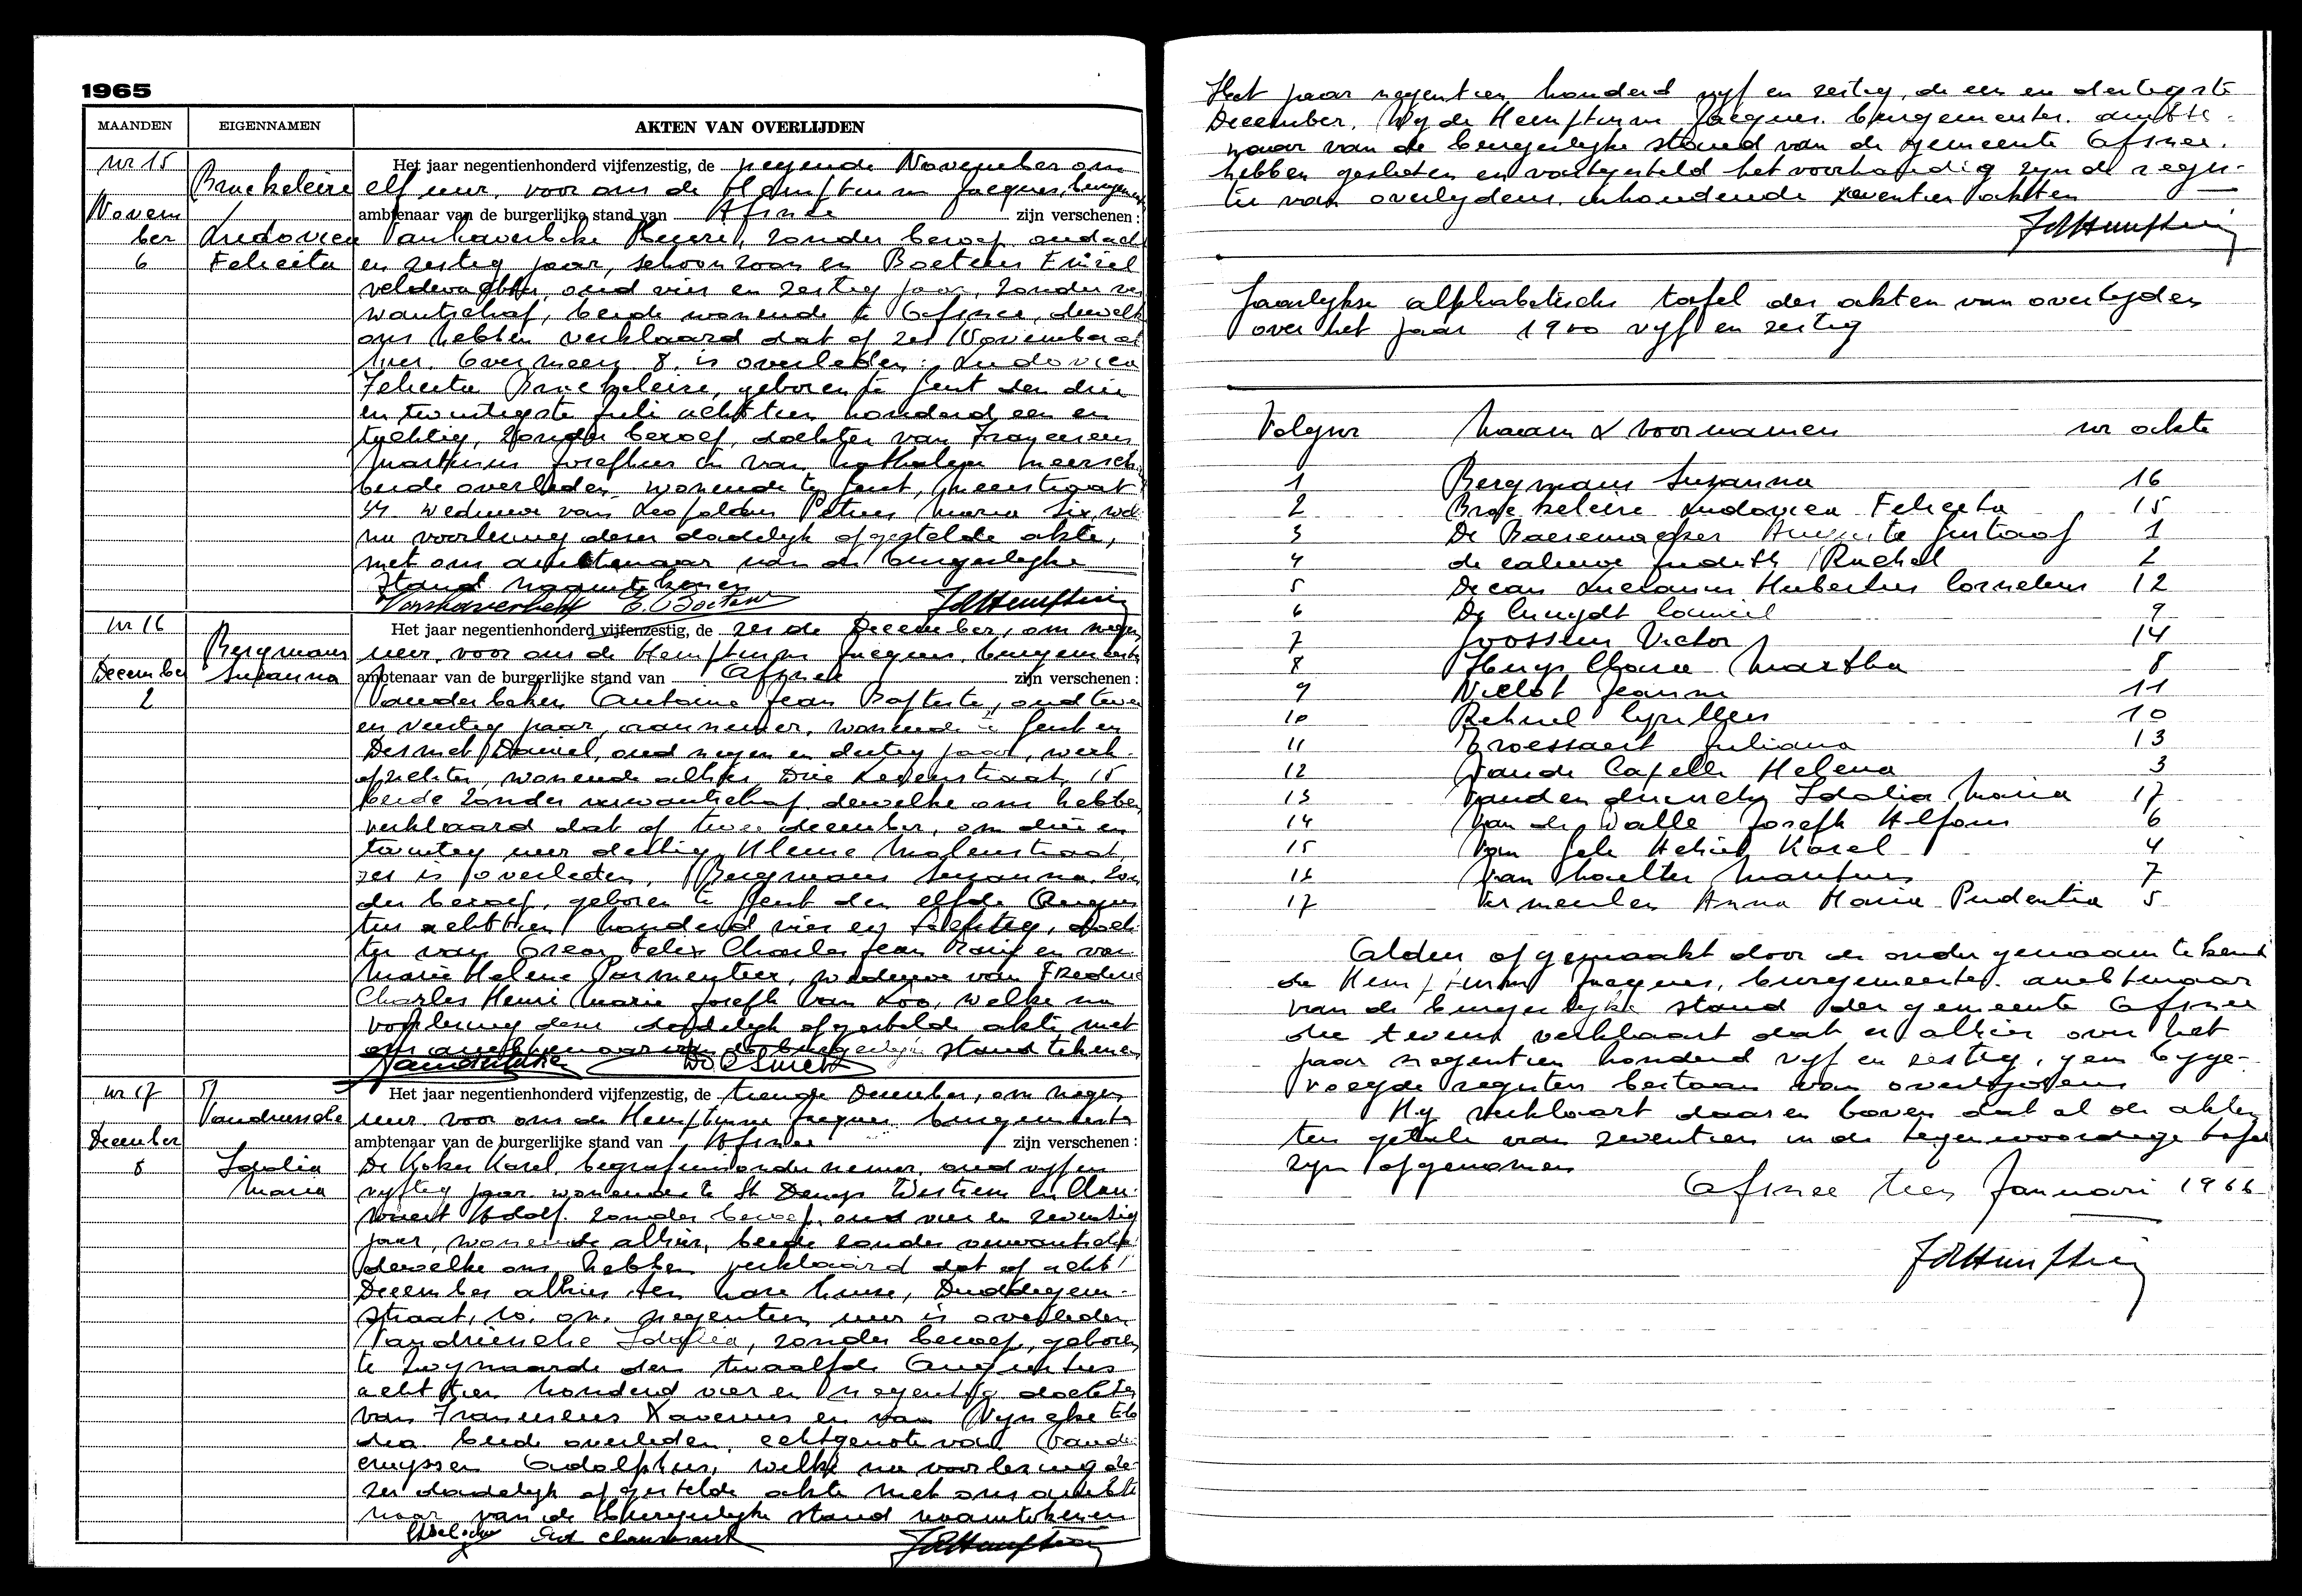 1965
MAANDEN EIGENNAMEN AKTEN VAN OVERLIJDEN
nr 15
Broekeleire
Novem
ber
6
Ludovica
Felicita
Het jaar negentienhonderd vijfenzestig, de negende November om
elf uur, voor ons de Hemptinne Jacques, burgem
ambtenaar van de burgerlijke stand van Afsnee zijn verschenen:
Vanhaverbeke Henri, zonder beroep oud acht
en zestig jaar, schoonzoon en Boeteus Emiel
veldwachter, oud vier en zestig jaar, zonder ver
wantschap, beide wonende te Afsnee, dewelke
ons hebben verklaard dat op zes November al
hier Overmeers 8 is overleden: Ludovica
Felicita Broekeleire, geboren te Gent den drie
en twintigste Juli achttien honderd een en
tachtig, zonder beroep, dochter van Franciscus
Martinus Josephus en van Nathalya Meersch
beide overleden wonende te Gent, Meerstraat
Weduwe van Leopoldus Petrus Maria Six, welke
na voorlezing dezer dadelyk opgestelde akte,
met ons ambtenaar van de burgerlyke
Stand naamtekenen
Vanhaverbeke E. Boeteus JdHemptinne
nr 16
Bergmans
December
Suzanna
2
Het jaar negentienhonderd vijfenzestig, de zesde December, om negen
uur, voor ons de Hemptinne Jacques, burgemeester
ambtenaar van de burgerlijke stand van Afsnee zijn verschenen:
Vanderbeken Antoine Jean Baptiste, oud twee
en veertig jaar, aannemer, wonende te Gent en
Desmet Daniel, oud negen en dertig jaar, werk-
opzichter, wonende alhier, Drie Leyenstraat, 15
beide zonder verwantschap dewelke ons hebben
verklaard dat op twee december, om drie en
twintig uur dertig Kleine Molenstraat
zes is overleden, Bergmans Suzanna, zon
der beroep, geboren te Gent den elfde Augus
tus achttien honderd vier en tachtig, doch
ter van Oscar Felix Charles Jean Marie en van
Marie Helene Parmentier, weduwe van Frederic
Charles Henri Marie Joseph Van Loo, welke na
voorlezing dezer dadelyk opgestelde akte met
ons ambtenaar van de burgerlyke stand tekenen
D. Desmet
nr 17
Vandriessche
December
8
Idalia
Maria
Het jaar negentienhonderd vijfenzestig, de tiende December, om negen
uur voor ons de Hemptinne Jacques burgemeester
ambtenaar van de burgerlijke stand van Afsnee zijn verschenen:
De Koker Karel, begrafenisondernemer, oud vyf en
vyftig jaar wonende te St Denys Westrem en Clau-
waert Adolf zonder beroep, oud vier en zeventig
jaar, wonende alhier, beide zonder verwantschap
dewelke ons hebben verklaard dat op acht
December alhier, ten hare huize, Duddegem-
straat, 10, om negentien uur is overleden
Vandriessche Idalia, zonder beroep, geboren
te Zwynaarde den twaalfde Augustus
achttien honderd vier en negentig dochter
van Franciscus Xaverius en van Vyncke
beide overleden, echtgenote van Vande
cruyssen Adolphus, welke na voorlezing de-
zer dadelyk opgestelde akte met ons ambte
naar van de burgerlyke stand naamtekenen
JdHemptinne
Het jaar negentien honderd vyf en zestig, de een en dertigste
December. Wy de Hemptinne Jacques, burgemeester, ambte-
naar van de burgerlyke stand van de gemeente Afsnee.
hebben gesloten en vastgesteld het voorhandig zynde regis-
ter van overlydens inhoudende zeventien akten
JdHemptinne
Jaarlykse alphabetische tafel der akten van overlyden
over het jaar 1900 vyf en zestig
Volgnr Naam & voornamen nr akte
1 Bergmans Suzanna 16
2 Broekeleire Ludovica Felicita 15
3 De Baeremaeker Auguste Gustaaf 1
4 de caluwe Judith Rachel 2
5 Decan Lucianus Hubertus Cornelius 12
6 De Cuuydt Camiel 9
7 Goossens Victor 14
8 Huys Clara Martha 8
9 Niclot Jeanne 11
10 Rehuel Cyrillus 10
11 Troessaert Juliana 13
12 Vande Capelle Helena 3
13 Vandendriessche Idalia Maria 17
14 Van de Walle Joseph Alfons 6
15 Van Gele Karel 4
16 Van Houtte 7
17 Vermeulen Anna Maria Prudentia 5
Aldus opgemaakt door de ondergenaamtekende
de Hemptinne Jacques, burgemeester ambtenaar
van de burgerlyke stand der gemeente Afsnee
die tevens verklaart dat er alhier over het
jaar negentien honderd vyf en zestig, geen byge-
voegde registers bestaan van overlydens
Hy verklaart daar en boven dat al de akten
ten getale van zeventien in de tegenwoordige tafel
zyn opgenomen
Afsnee tien Januari 1966
JdHemptinne